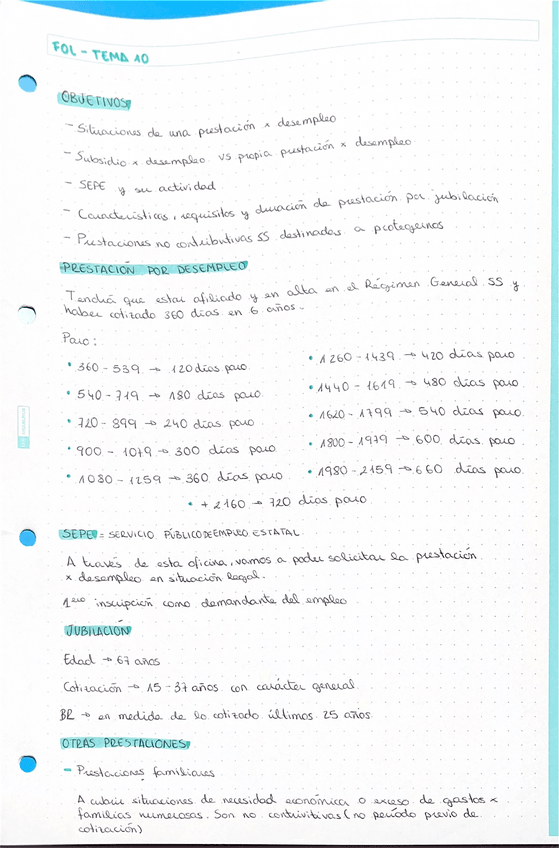 FOL - TEMA 10
OBJETIVOS
- Situaciones de una prestación x desempleo
- Subsidio x desempleo vs propia prestación x desempleo
- SEPE y su actividad
- Características, requisitos y duración de prestación por jubilación
- Prestaciones no contributivas SS destinadas a protegernos
PRESTACIÓN POR DESEMPLEO
Tendrá que estar afiliado y en alta en el Régimen General SS y
haber cotizado 360 días en 6 años.
Paro:
• 360 - 539 → 120 días paro
• 540 - 719 → 180 días paro
• 720 - 899 → 240 días paro
• 900 - 1079 → 300 días paro
• 1080 - 1259 → 360 días paro
• 1260 - 1439 → 420 días paro
• 1440 - 1619 → 480 días paro
• 1620 - 1799 → 540 días paro
• 1800 - 1979 → 600 días paro
• 1980 - 2159 → 660 días paro
• + 2160 → 720 días paro
SEPE = SERVICIO PÚBLICO DE EMPLEO ESTATAL
A través de esta oficina, vamos a poder solicitar la prestación
x desempleo en situación legal.
1ero inscripción como demandante del empleo
JUBILACIÓN
Edad → 67 años
Cotización → 15 - 37 años con carácter general
BR → en medida de lo cotizado últimos 25 años
OTRAS PRESTACIONES
- Prestaciones familiares
A cubrir situaciones de necesidad económica o exceso de gastos x
familias numerosas. Son no contrivitivas (no período previo de
cotización)